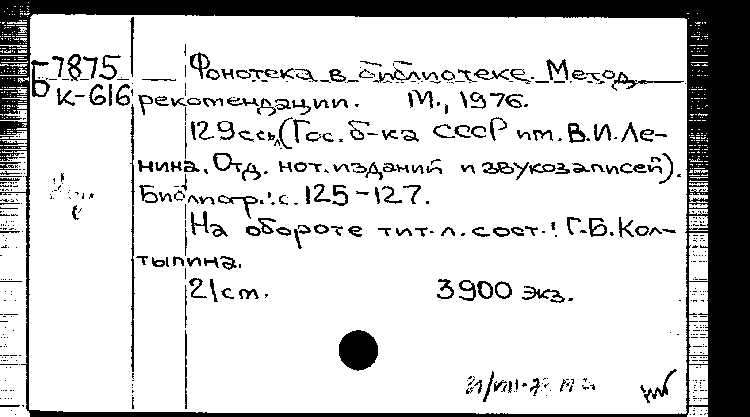 Б7875 Фонотека в библиотеке. Метод.
К-616 рекомендации. М., 1976.
129сс. (Гос. б-ка СССР им. В.И.Ле-
нина. Отд. нот. изданий и звукозаписей).
Библиогр.: с. 125-127.
На обороте тит. л. сост.: Г.Б.Кол-
тыпина.
21см. 3900 экз.